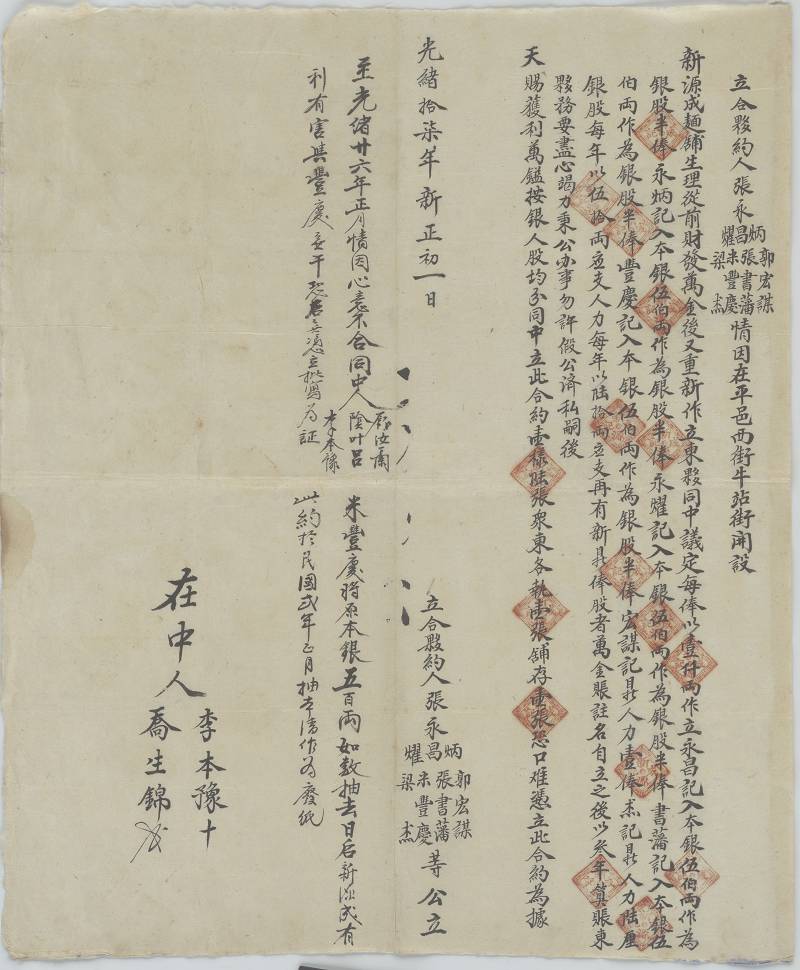 立合夥約人張永昌炳燿郭宏謀張書藩米豐慶梁杰情因在平邑西街牛站街開設
新源成麵舖生理從前財發萬金後又重新作立東夥同中議定每俸以壹仟兩作立永昌記入本銀伍伯兩作為
銀股半俸永炳記入本銀伍伯兩作為銀股半俸永燿記入本銀伍伯兩作為銀股半俸書藩記入本銀伍
伯兩作為銀股半俸豐慶記入本銀伍伯兩作為銀股半俸宏謀記頂人力壹俸杰記頂人力陸厘
銀股每年以伍拾兩立支人力每年以陸拾兩立支再有新頂俸股者萬金賬註名自立之後以叁年算賬東
夥務要盡心竭力秉公办事勿許假公済私嗣後
天賜獲利萬鎰按銀人股均分同中立此合約壹樣陸張衆東各執壹張舖存壹張恐口难憑立此合約為據
光緒拾柒年新正初一日
立合夥約人張永昌炳燿郭宏謀張書藩米豐慶梁杰等公立
至光緒廿六年正月情因心意不合同中人
陰叶吕
李本豫
米豐慶將原本銀五百兩如数抽去日后新源成有
利有害與豐慶無干恐后無憑立批寫為証
此約於民國弍年正月抽本清作為廢紙
在中人
李本豫十
喬生錦